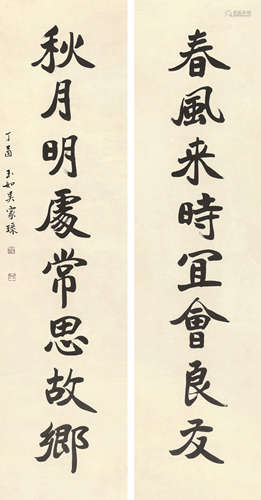 春風来時宜會良友
秋月明處常思故鄉
丁酉 玉如吴家琭